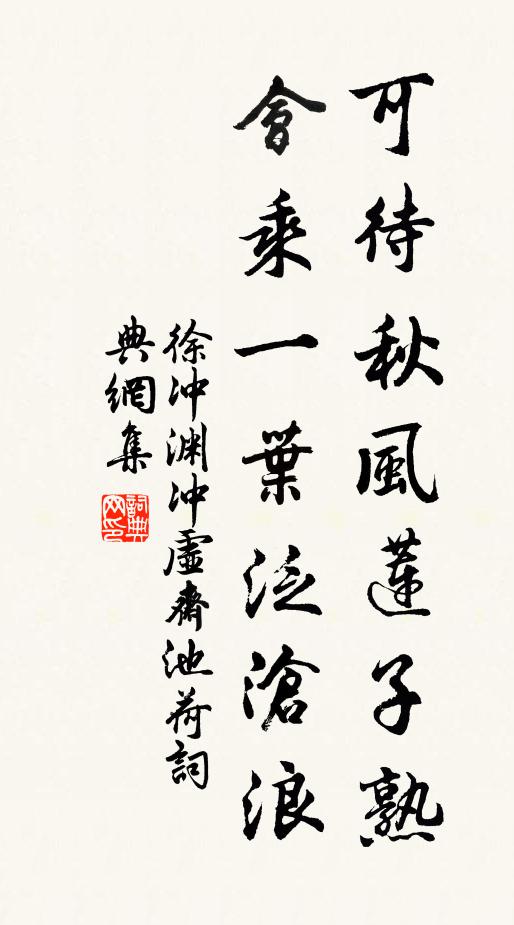 可待秋風蓮子熟
會乘一葉泛滄浪
徐沖淵沖虛齋池荷詞
典網集
詞典网印